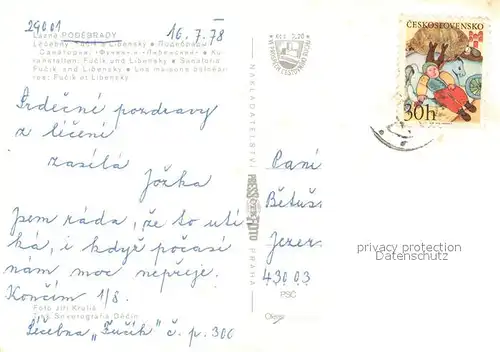 29001
16.7.78
Lázně PODĚBRADY
Léčebny Fučík a Libenský • Подебрады
Санатории «Фучик» и «Либенский» • Ku-
ranstalten: Fučík und Libenský • Sanatoria
Fučík and Libenský • Les maisons balnéai-
res: Fučík et Libenský
Srdečné pozdravy
z léčení
zasílá
Jožka
Jsem ráda, že to utí
ká, i když počasí
nám moc nepřeje.
Končím 1/8.
Foto Jiří Kruliš
Tisk Severografia Děčín
Léčebna „Fučík" č. p. 306
NAKLADATELSTVÍ
PRESSFOTO
PRAHA
Kčs
ČESKOSLOVENSKO
30h
Paní
Bětuš
Jezer
430 03
PSČ
privacy protection
Datenschutz